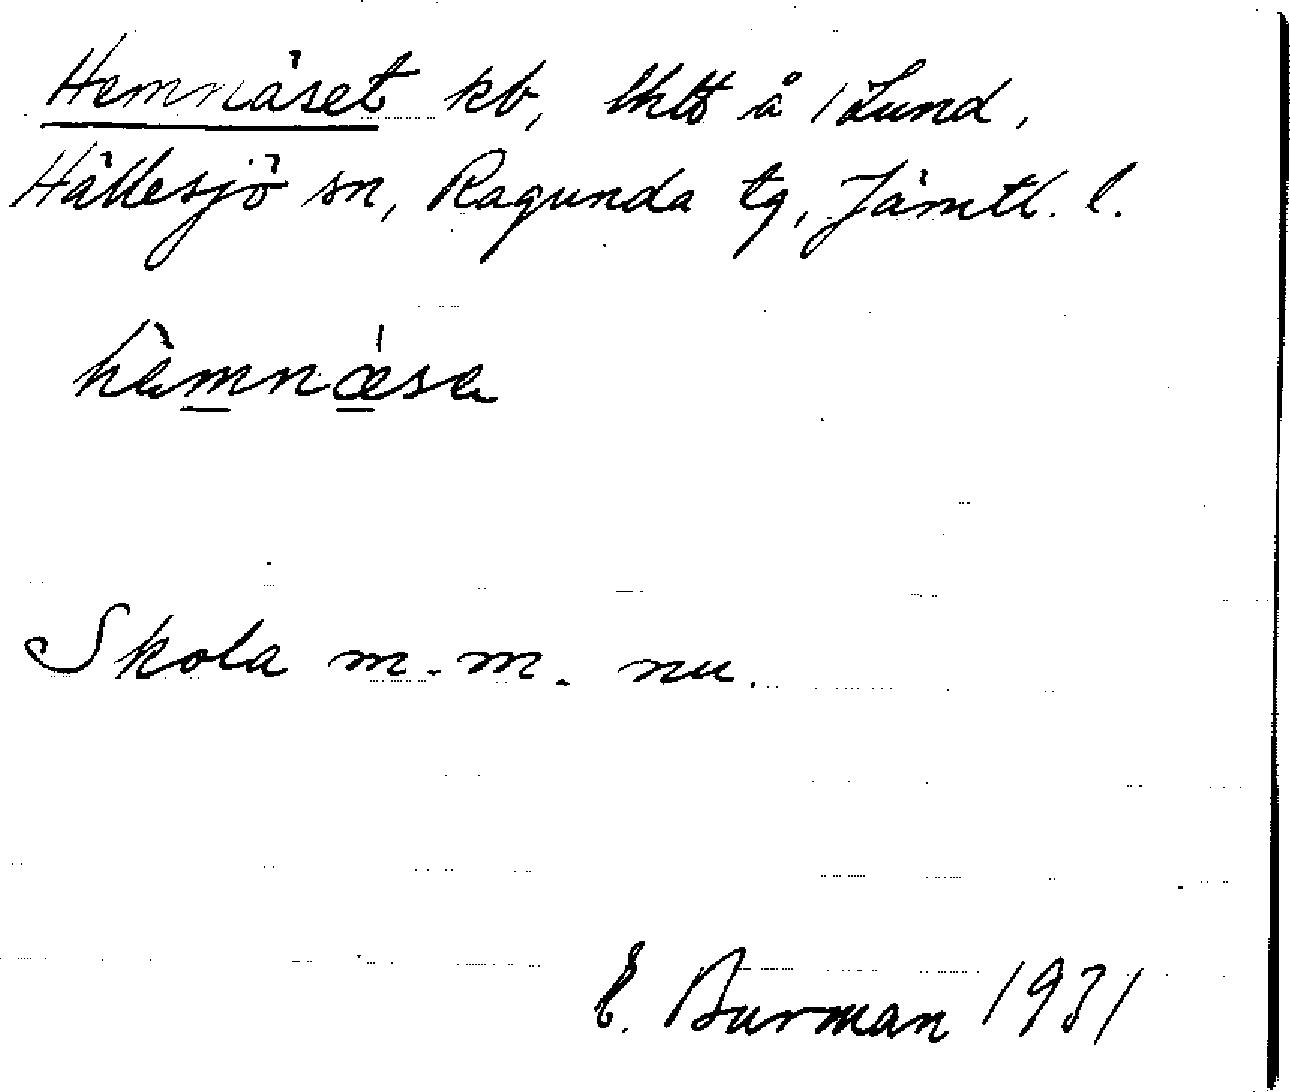 Hemnäset kb, lht å 1 Lund,
Hällesjö sn, Ragunda tg, Jämtl. l.
hèmnæ̀sa
Skola m.m. nu.
E. Burman 1931